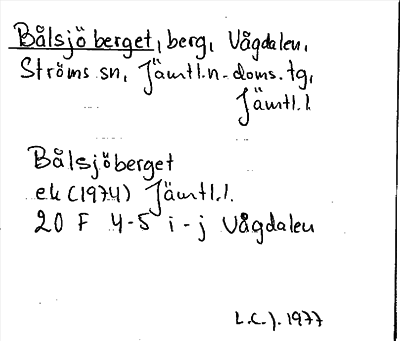 Bålsjöberget, berg, Vågdalen,
Ströms sn, Jämtl.n.doms.tg,
Jämtl.l
Bålsjöberget
ek (1974) Jämtl.l.
20 F 4-5 i-j Vågdalen
L.C.J. 1977